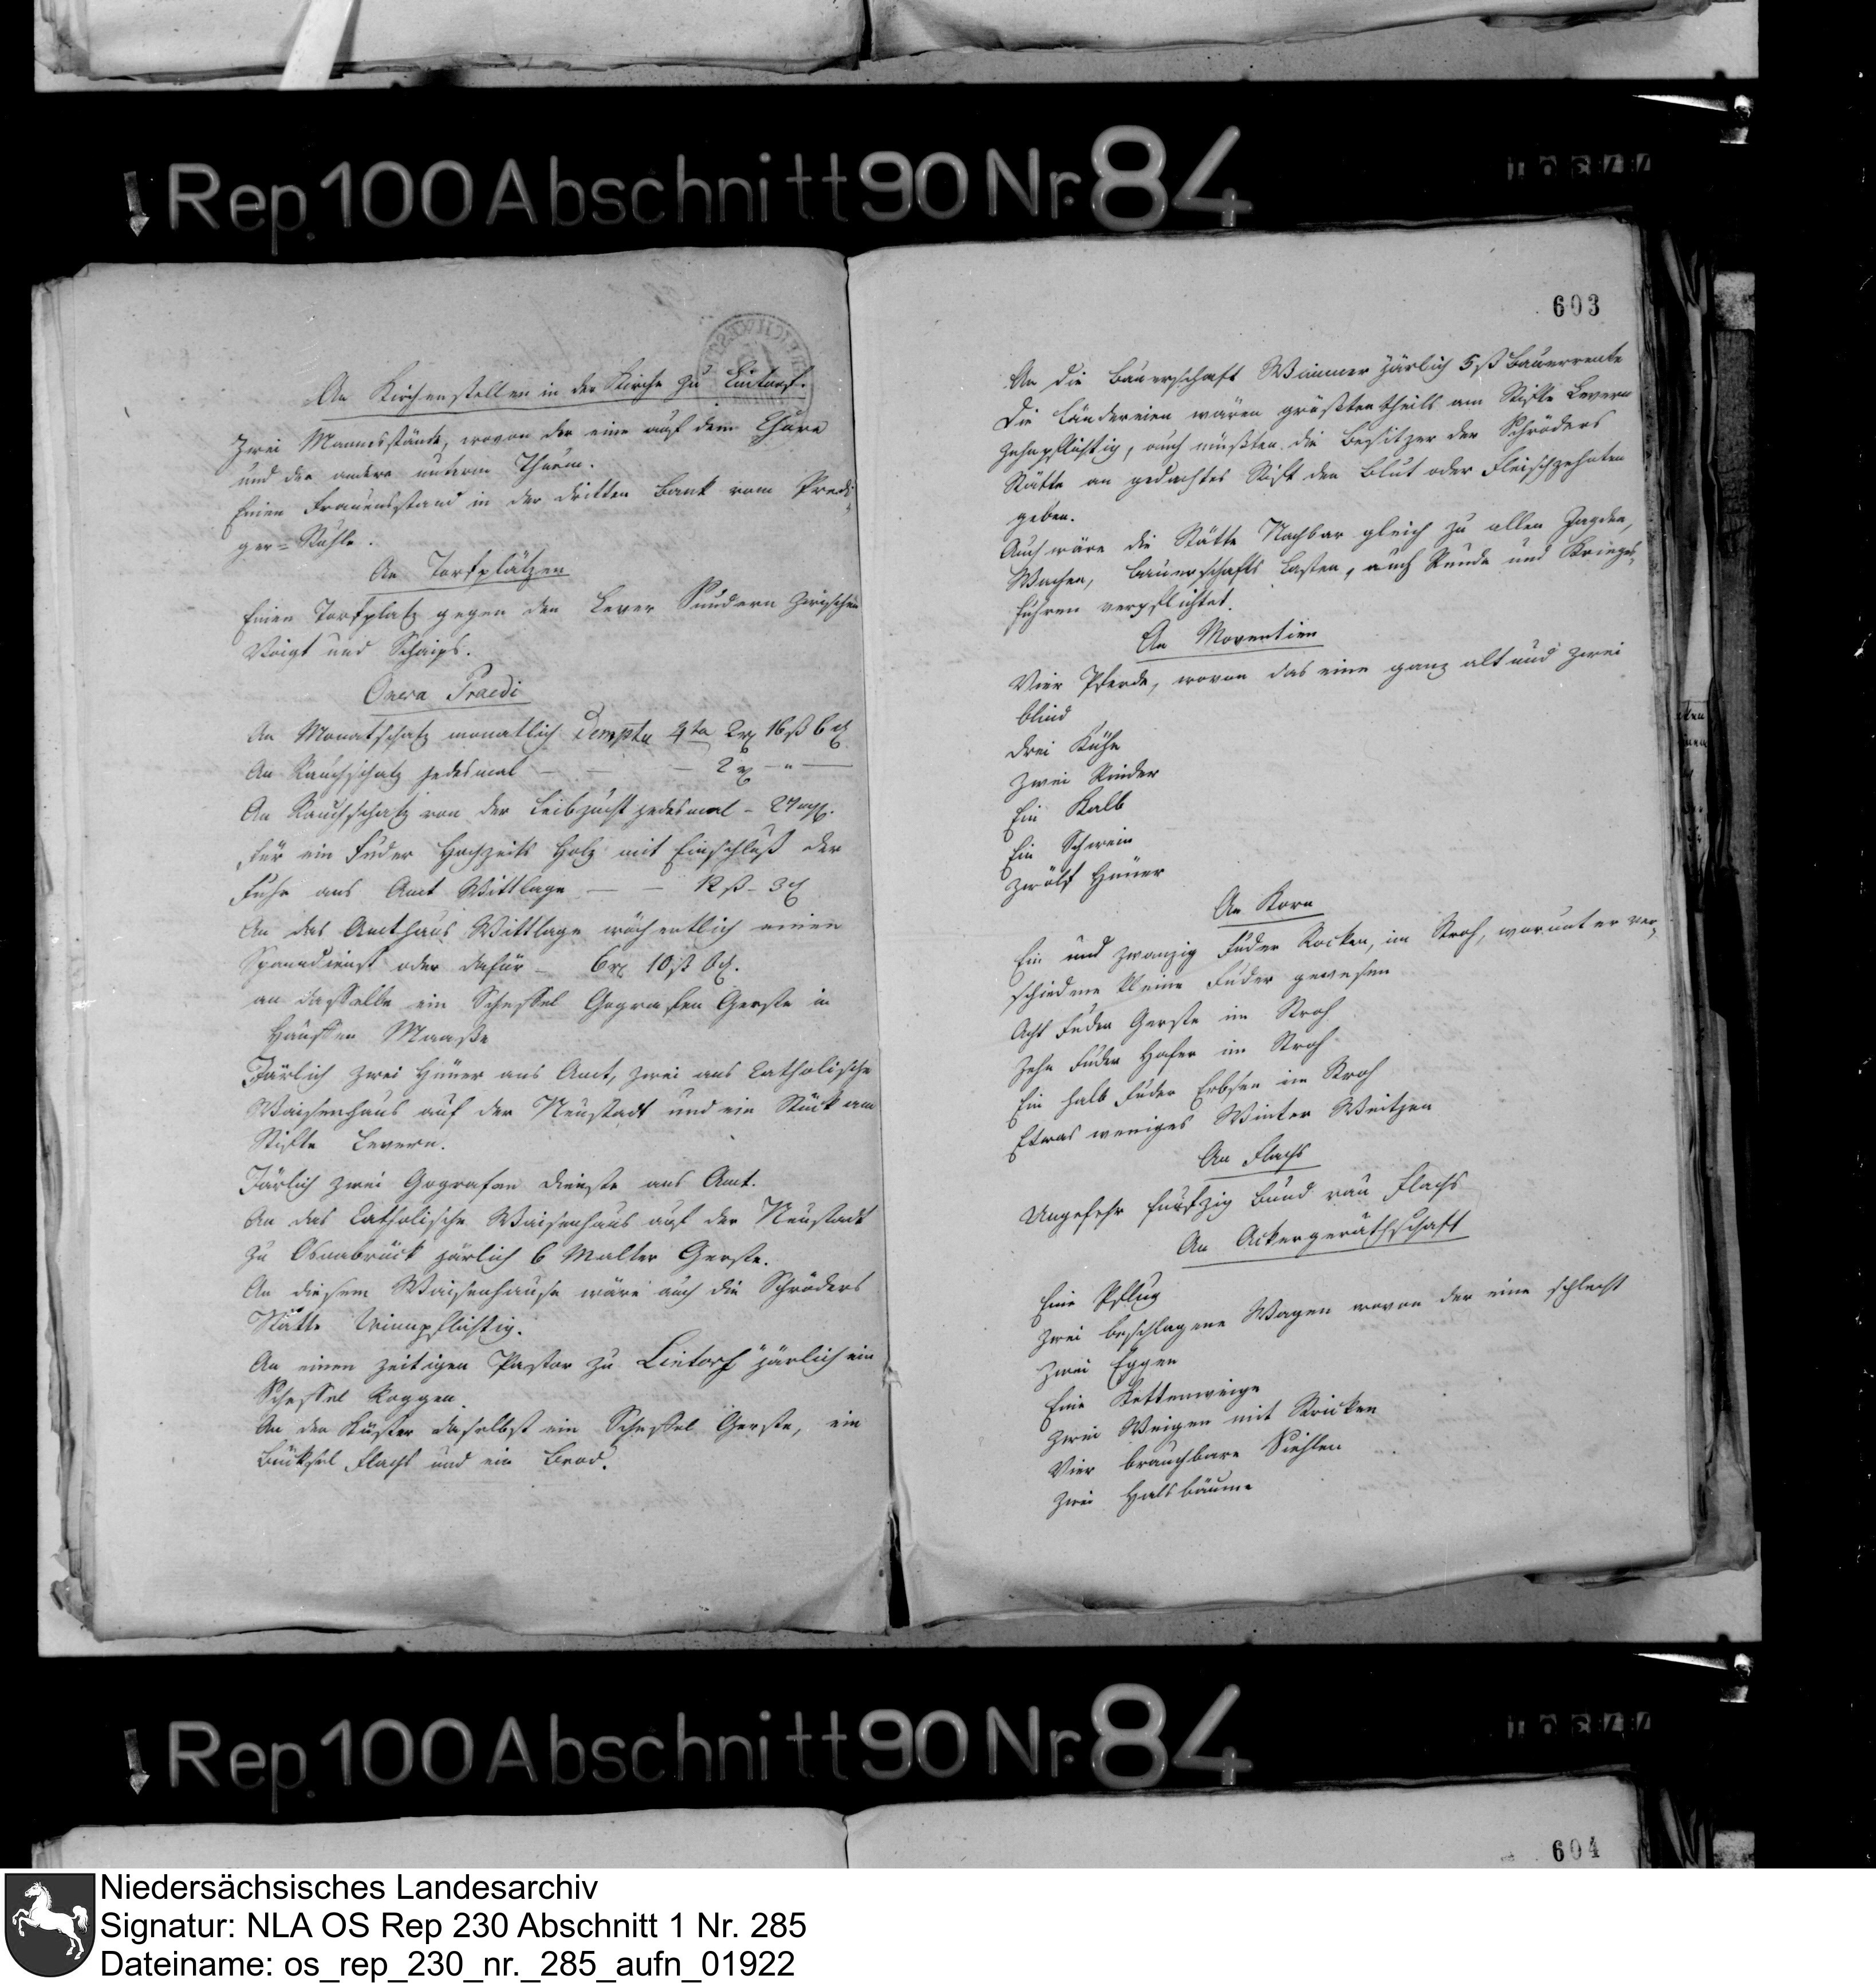 Rep. 100 Abschnitt 90 Nr. 84
An Kirchenstellen in der Kirche zu Lintorf.
Zwei Mannsstände, wovon der eine auf dem Chore
und der andere unterm Thurm.
Einen Frauensstand in der dritten Bank vom Predi-
ger-Stuhle.
An Torfplätzen
Einen Torfplatz gegen den Lever Sundern zwischen
Voigt und Schaips.
Onera Praedi
An Monatschatz monatlich Dempta 4ta 2 rt 16 ß 6 d
An Rauchschatz jedesmal — — — 2 rt — " —
An Rauchschatz von der Leibzucht jedesmal - 27 mg.
Für ein Fuder Hochzeits Holz mit Einschluß der
Fuhr ans Amt Wittlage — — 12 ß - 3 d
An das Amthaus Wittlage wöchentlich einen
Spanndienst oder dafür — 6 rt 10 ß 6 d.
an dasselbe ein Scheffel Gografen Gerste in
Häuffen Maaße
Järlich zwei Hüner ans Amt, zwei ans Catholische
Waisenhaus auf der Neustadt und ein Stück am
Stifte Levern.
Järlich zwei Gografen Dienste ans Amt.
An das Catholische Waisenhaus auf der Neustadt
zu Osnabrück järlich 6 Malter Gerste.
An diesem Waisenhause wäre auch die Schröders
Stätte Weinpflichtig.
An einen zeitigen Pastor zu Lintorf järlich ein
Scheffel Roggen.
An den Küster daselbst ein Scheffel Gerste, ein
Flachs und ein Brod.
603
An die Bauerschaft Wimmer järlich 5 ß Bauerrente
Die Ländereien wären größtentheils am Stifte Levern
Zehnpflichtig, auch müßten die Besitzer der Schröders
Stätte an gedachtes Stift den Blut oder Fleischzehnten
geben.
Auch wäre die Stätte Nachbar gleich zu allen Jagden,
Wachen, Bauerschafts Lasten, auch Runde und Krieges-
fuhren verpflichtet.
An Moventien
Vier Pferde, wovon das eine ganz alt und zwei
blind
Drei Kühe
Zwei Rinder
Ein Kalb
Ein Schwein
Zwölf Hüner
An Korn
Ein und zwanzig Fuder Rocken, im Stroh, worunter ver-
schiedene kleine Fuder gewesen
Acht Fuder Gerste im Stroh
Zehn Fuder Hafer im Stroh
Ein halb Fuder Erbsen im Stroh
Etwas weniges Winter Weitzen
An Flachs
Ungefehr funfzig Bund rau Flachs
An Ackergeräthschaft
Eine Pflug
Zwei beschlagene Wagen wovon der eine schlecht
Zwei Eggen
Eine Kettenweige
Zwei Weigen mit Stricken
Vier brauchbare Siehlen
Zwei Halsbäume
Rep. 100 Abschnitt 90 Nr. 84
604
Niedersächsisches Landesarchiv
Signatur: NLA OS Rep 230 Abschnitt 1 Nr. 285
Dateiname: os_rep_230_nr._285_aufn_01922